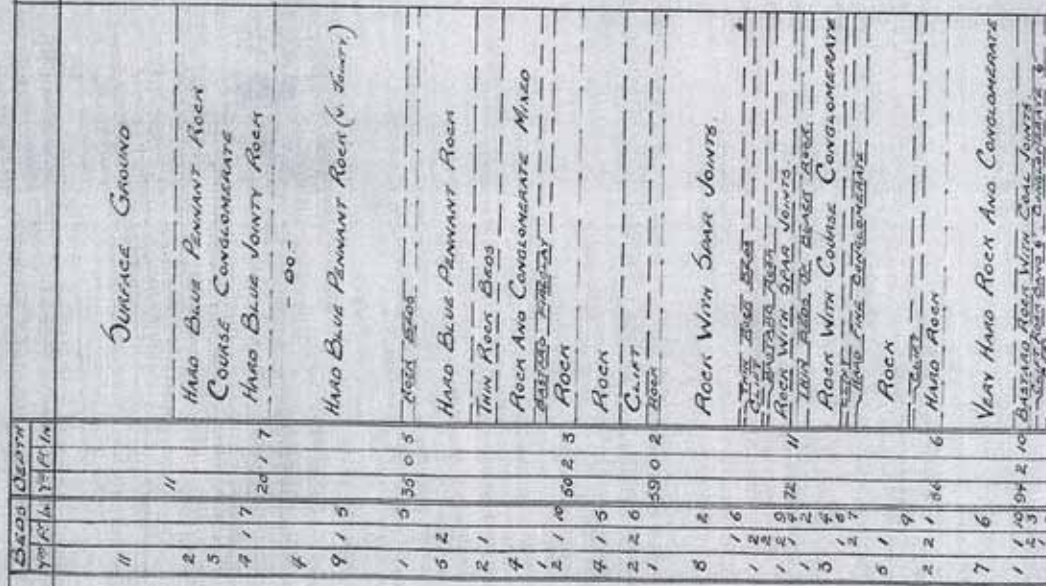 BEDS DEPTH
Yds Ft In Yds Ft In
11 11 SURFACE GROUND
2 HARD BLUE PENNANT ROCK
5 COURSE CONGLOMERATE
4 1 7 20 1 7 HARD BLUE JOINTY ROCK
4 - DO. -
9 1 5 HARD BLUE PENNANT ROCK (V. JOINTY.)
1 5 35 0 5 ROCK BEDS
6 2 HARD BLUE PENNANT ROCK
2 1 THIN ROCK BEDS
4 ROCK AND CONGLOMERATE MIXED
1 BASTARD FIRECLAY
2 1 10 50 2 3 ROCK
4 1 5 ROCK
2 2 6 CLIFT
1 59 0 2 ROCK
8 2 ROCK WITH SPAR JOINTS
1 1 6 THIN ROCK BEDS
CLIFT
BASTARD ROCK
72 11 ROCK WITH SPAR JOINTS
THIN BEDS OF BLACK ROCK
5 4 ROCK WITH COURSE CONGLOMERATE
CLIFT
HARD FINE CONGLOMERATE
6 1 ROCK
9 CLIFT
2 2 1 86 6 HARD ROCK
7 6 VERY HARD ROCK AND CONGLOMERATE
1 1 10 94 2 10 BASTARD ROCK WITH COAL JOINTS
CONGLOMERATE